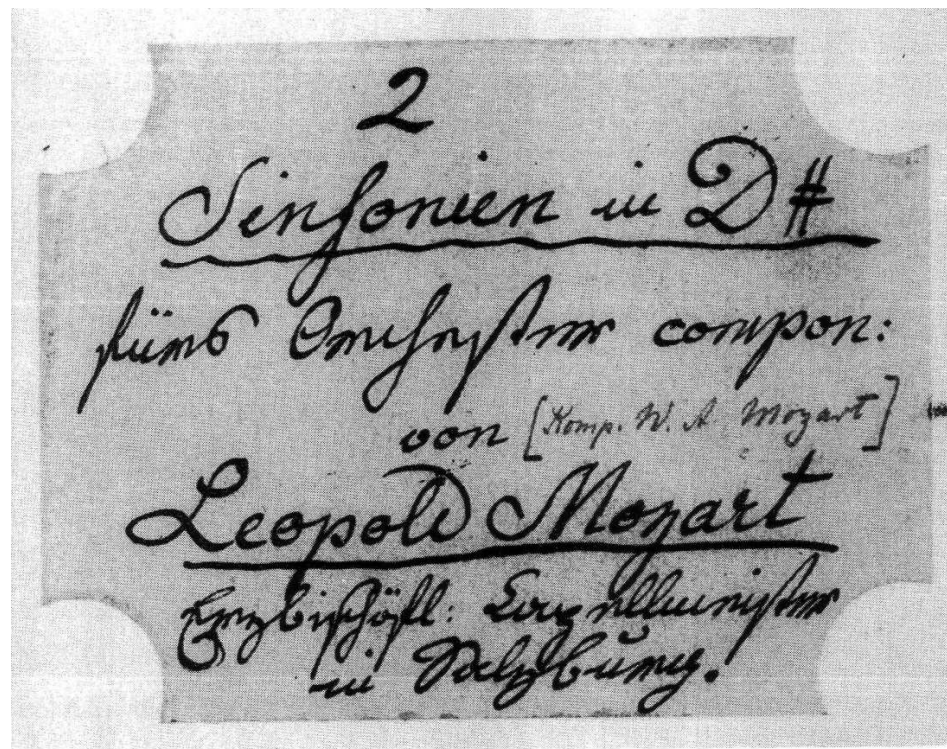 2
Sinfonien in D#
fürs Orchester compon:
von [Komp. W. A. Mozart]
Leopold Mozart
Erzbischöfl: Capellmeister
in Salzburg.